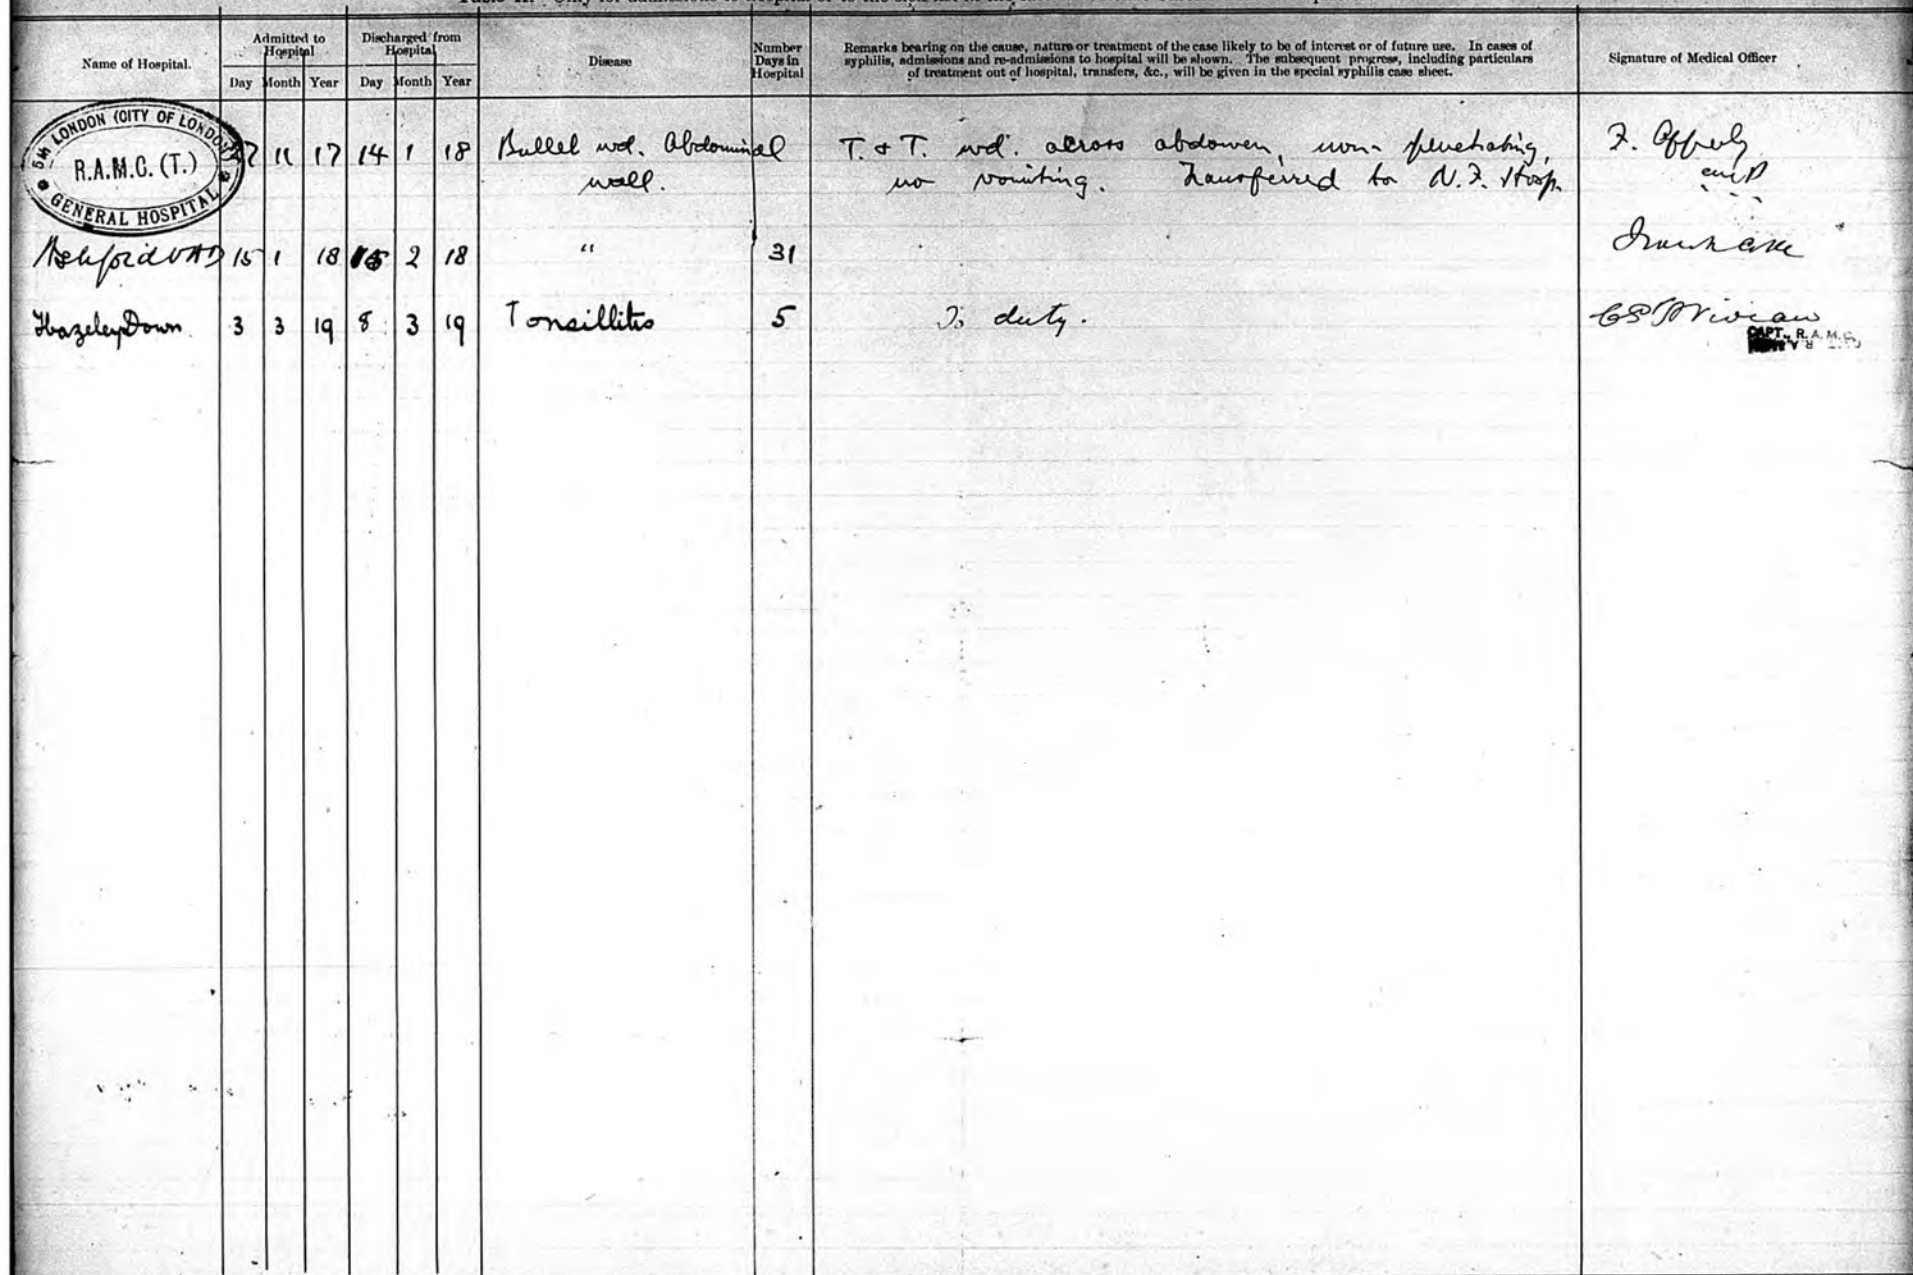 Name of Hospital.
Admitted to
Hospital
Day Month Year
Discharged from
Hospital
Day Month Year
Disease
Number
Days in
Hospital
Remarks bearing on the cause, nature or treatment of the case likely to be of interest or of future use. In cases of
syphilis, admissions and re-admissions to hospital will be shown. The subsequent progress, including particulars
of treatment out of hospital, transfers, &c., will be given in the special syphilis case sheet.
Signature of Medical Officer
5th LONDON (CITY OF LONDON)
R.A.M.C. (T.)
GENERAL HOSPITAL
7 11 17 14 1 18 Bullet wd. Abdominal T. & T. wd. across abdomen, non-penetrating,
wall. no vomiting. Transferred to N.Z. Hosp.
Ashford VAD 15 1 18 15 2 18 " 31
Hazeley Down. 3 3 19 8 3 19 Tonsillitis 5 To duty.
CAPT., R.A.M.C.